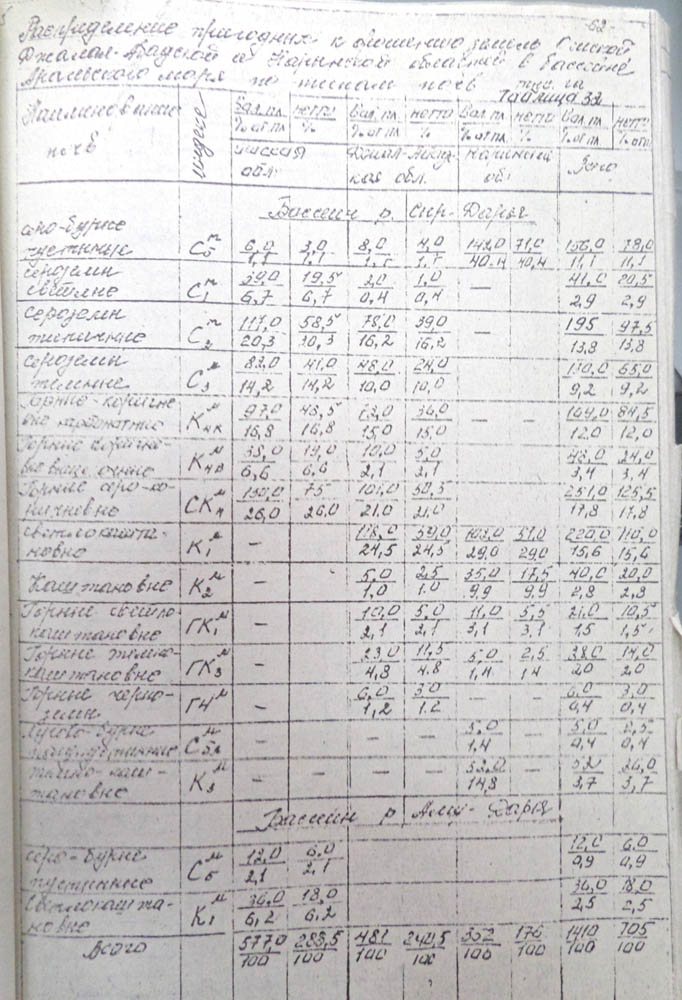 -62-
Распределение пригодных к орошению земель Ошской
Джалал-Абадской и Нарынской областей в бассейне
Аральского моря по типам почв тыс. га
Таблица 33
Наименование почв индекс Вал.пл % от пл нетто % Вал.пл % от пл нетто % Вал.пл % от пл нетто % Вал.пл % от пл нетто % от п
Ошская обл. Джалал-Абадская обл. Нарынская об. Всего
Бассейн р. Сыр-Дарья
серо-бурые пустынные 6,0 1,1 3,0 1,1 8,0 4,0 142,0 40.4 71,0 40,4 156,0 11,1 78,0 11,1
сероземы светлые 39,0 6,7 19,5 6,7 2,0 0,4 1,0 0,4 — — 41,0 2,9 20,5 2,9
сероземы типичные 117,0 20,3 58,5 20,3 78,0 16,2 39,0 16,2 — — 195 13,8 97,5 13,8
сероземы темные 82,0 14,2 41,0 14,2 48,0 10,0 24,0 10,0 — — 130,0 9,2 65,0 9,2
Горно-коричневые карбонатные 97,0 16,8 48,5 16,8 72,0 15,0 36,0 15,0 — — 169,0 12,0 84,5 12,0
Горные коричневые 38,0 6,6 19,0 6,6 10,0 2,1 5,0 2,1 — — 48,0 3,4 24,0 3,4
Горные серо-коричневые 150,0 26,0 75 26,0 101,0 21,0 50,5 21,0 — — 251,0 17,8 125,5 17,8
светлокаштановые — 118,0 24,5 59,0 24,5 102,0 29,0 51,0 29,0 220,0 15,6 110,0 15,6
Каштановые — 5,0 1,0 2,5 1.0 35,0 9,9 17,5 9,9 40,0 2,8 20,0 2,8
Горные светлокаштановые — 10,0 2,1 5,0 2,1 11,0 3,1 5,5 3,1 21,0 1,5 10,5 1,5
Горные темнокаштановые — — 23,0 4,8 11,5 4.8 5,0 1,4 2,5 1,4 28,0 2,0 14,0 2,0
Горные черноземы — — 6,0 1,2 3,0 1.2 — — 6,0 0,4 3,0 0,4
Лугово-бурые — — — — 5,0 1,4 5,0 0,4 2,5 0,4
темно-каштановые — — — — 52,0 14,8 52 3,7 26,0 3,7
Бассейн р. Аму-Дарья
серо-бурые пустынные 12,0 2,1 6,0 2,1 12,0 0,9 6,0 0,9
Светлокаштановые 36,0 6,2 18,0 6,2 36,0 2,5 18,0 2,5
Всего 577,0 100 288,5 100 481 100 240,5 100 352 100 176 100 1410 100 705 100